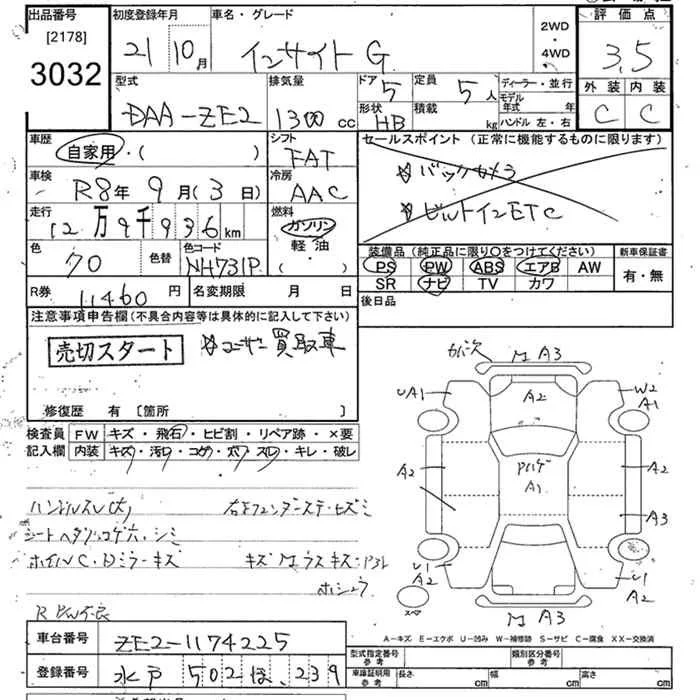 出品番号
[2178]
3032
初度登録年月
21 10月
車名・グレード
インサイト G
2WD
・
4WD
評価点
3.5
外装 内装
C C
型式
DAA-ZE2
排気量
1300 cc
ドア 5
形状 HB
定員 5人
積載 kg
ディーラー・並行
モデル年式 年
ハンドル 左・右
車歴
自家用・( )
シフト
FAT
車検
R8年 9月(3日)
冷房
AAC
走行
12万9千936km
燃料
ガソリン
軽油
・( )
色
70
色替
色コード
NH731P
R券 11460円
名変期限 月 日
セールスポイント (正常に機能するものに限ります)
☆バックカメラ
☆ビルトインETC
装備品 (純正品に限り○をつけてください)
PS PW ABS エアB AW
SR ナビ TV カワ
新車保証書
有・無
後日品
注意事項申告欄(不具合内容等は具体的に記入して下さい)
売切スタート
☆ユーザー買取車
修復歴 有 [箇所 ]
検査員記入欄
FW キズ・飛石・ヒビ割・リペア跡・×要
内装 キズ・汚れ・コゲ・穴・スレ・キレ・破レ
ハンドルスレ(大)
シートヘタリ コゲ穴・シミ
キズ
R
車台番号 ZE2-1174225
登録番号 水戸 502 ほ 239
M A3
UA1
A2
W2
A1
A2
A1
A2
A3
U1
A2
U1
A2
スペア
M A3
A-キズ E-エクボ U-凹み W-補修跡 S-サビ C-腐食 XX-交換済
型式指定番号
参考
類別区分番号
参考
車庫証明用
参考
長さ cm
幅 cm
高さ cm